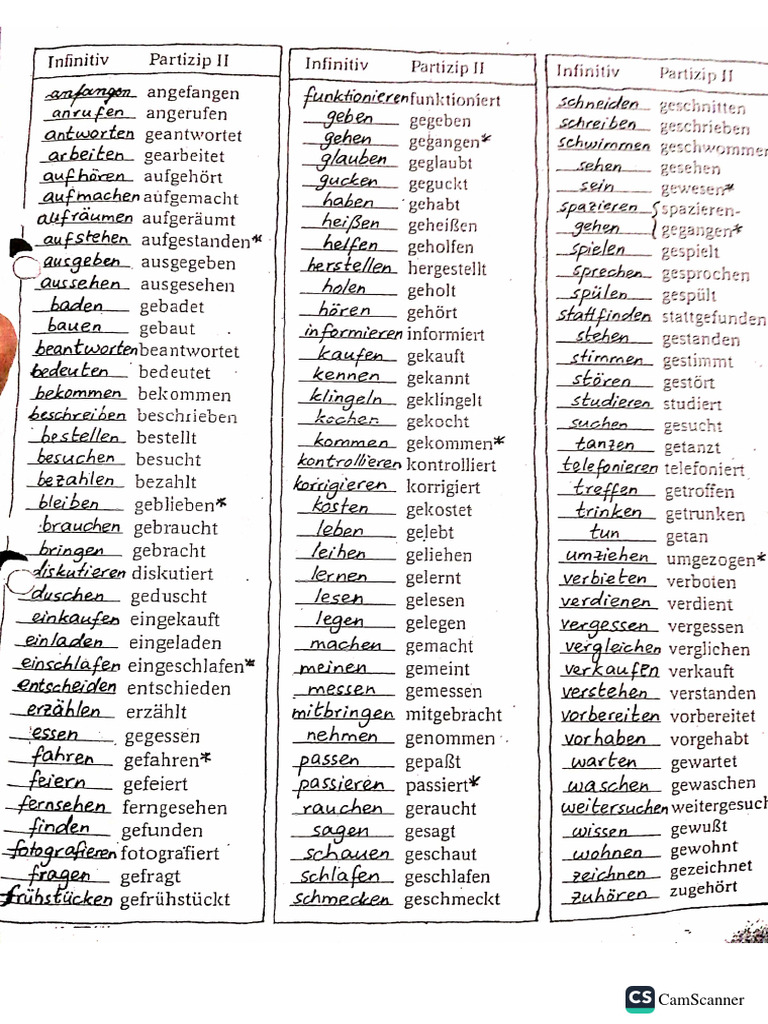 Infinitiv Partizip II
anfangen angefangen
anrufen angerufen
antworten geantwortet
arbeiten gearbeitet
aufhören aufgehört
aufmachen aufgemacht
aufräumen aufgeräumt
aufstehen aufgestanden*
ausgeben ausgegeben
aussehen ausgesehen
baden gebadet
bauen gebaut
beantworten beantwortet
bedeuten bedeutet
bekommen bekommen
beschreiben beschrieben
bestellen bestellt
besuchen besucht
bezahlen bezahlt
bleiben geblieben*
brauchen gebraucht
bringen gebracht
diskutieren diskutiert
duschen geduscht
einkaufen eingekauft
einladen eingeladen
einschlafen eingeschlafen*
entscheiden entschieden
erzählen erzählt
essen gegessen
fahren gefahren*
feiern gefeiert
fernsehen ferngesehen
finden gefunden
fotografieren fotografiert
fragen gefragt
frühstücken gefrühstückt
Infinitiv Partizip II
funktionieren funktioniert
geben gegeben
gehen gegangen*
glauben geglaubt
gucken geguckt
haben gehabt
heißen geheißen
helfen geholfen
herstellen hergestellt
holen geholt
hören gehört
informieren informiert
kaufen gekauft
kennen gekannt
klingeln geklingelt
kochen gekocht
kommen gekommen*
kontrollieren kontrolliert
korrigieren korrigiert
kosten gekostet
leben gelebt
leihen geliehen
lernen gelernt
lesen gelesen
legen gelegen
machen gemacht
meinen gemeint
messen gemessen
mitbringen mitgebracht
nehmen genommen
passen gepaßt
passieren passiert*
rauchen geraucht
sagen gesagt
schauen geschaut
schlafen geschlafen
schmecken geschmeckt
Infinitiv Partizip II
schneiden geschnitten
schreiben geschrieben
schwimmen geschwommen
sehen gesehen
sein gewesen*
spazieren spazieren-
gehen gegangen*
spielen gespielt
sprechen gesprochen
spülen gespült
stattfinden stattgefunden
stehen gestanden
stimmen gestimmt
stören gestört
studieren studiert
suchen gesucht
tanzen getanzt
telefonieren telefoniert
treffen getroffen
trinken getrunken
tun getan
umziehen umgezogen*
verbieten verboten
verdienen verdient
vergessen vergessen
vergleichen verglichen
verkaufen verkauft
verstehen verstanden
vorbereiten vorbereitet
vorhaben vorgehabt
warten gewartet
waschen gewaschen
weitersuchen weitergesuch
wissen gewußt
wohnen gewohnt
zeichnen gezeichnet
zuhören zugehört
CS CamScanner